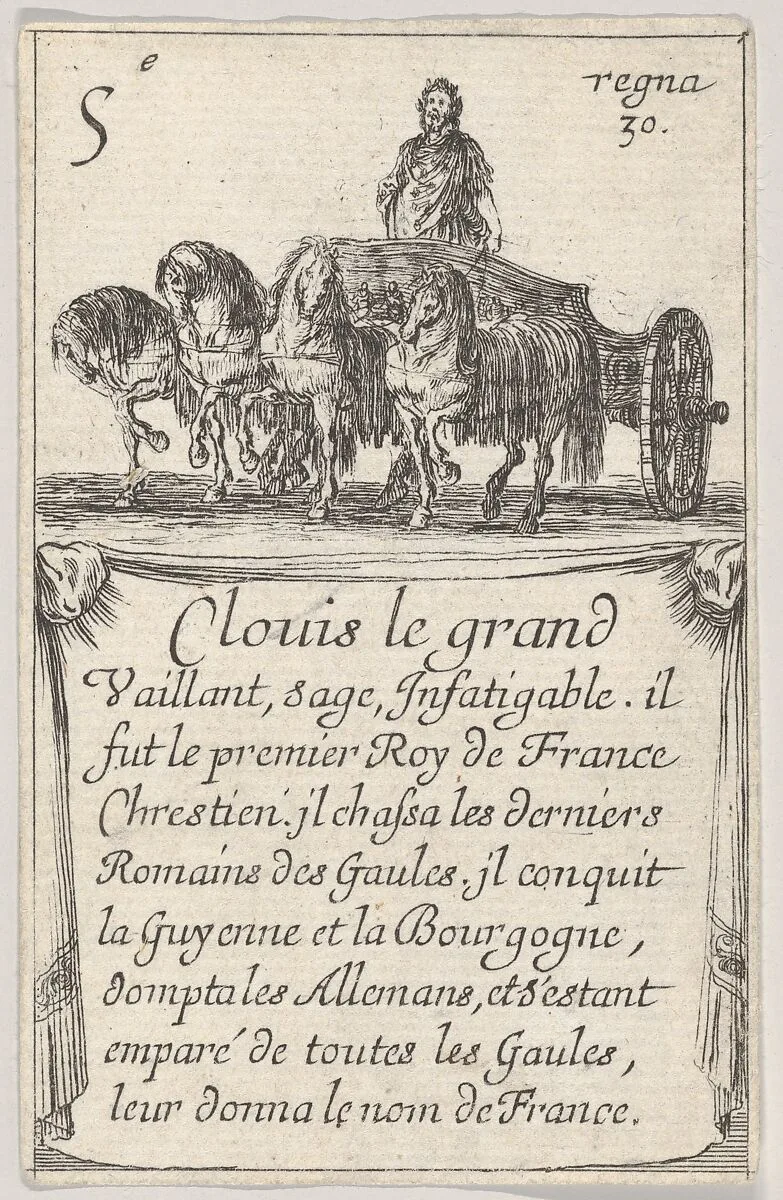 Sᵉ
regna
30.
Clouis le grand
Vaillant, sage, Infatigable. il
fut le premier Roy de France
Chrestien. jl chaſsa les derniers
Romains des Gaules. jl conquit
la Guyenne et la Bourgogne,
dompta les Allemans, et s'estant
emparé de toutes les Gaules,
leur donna le nom de France.